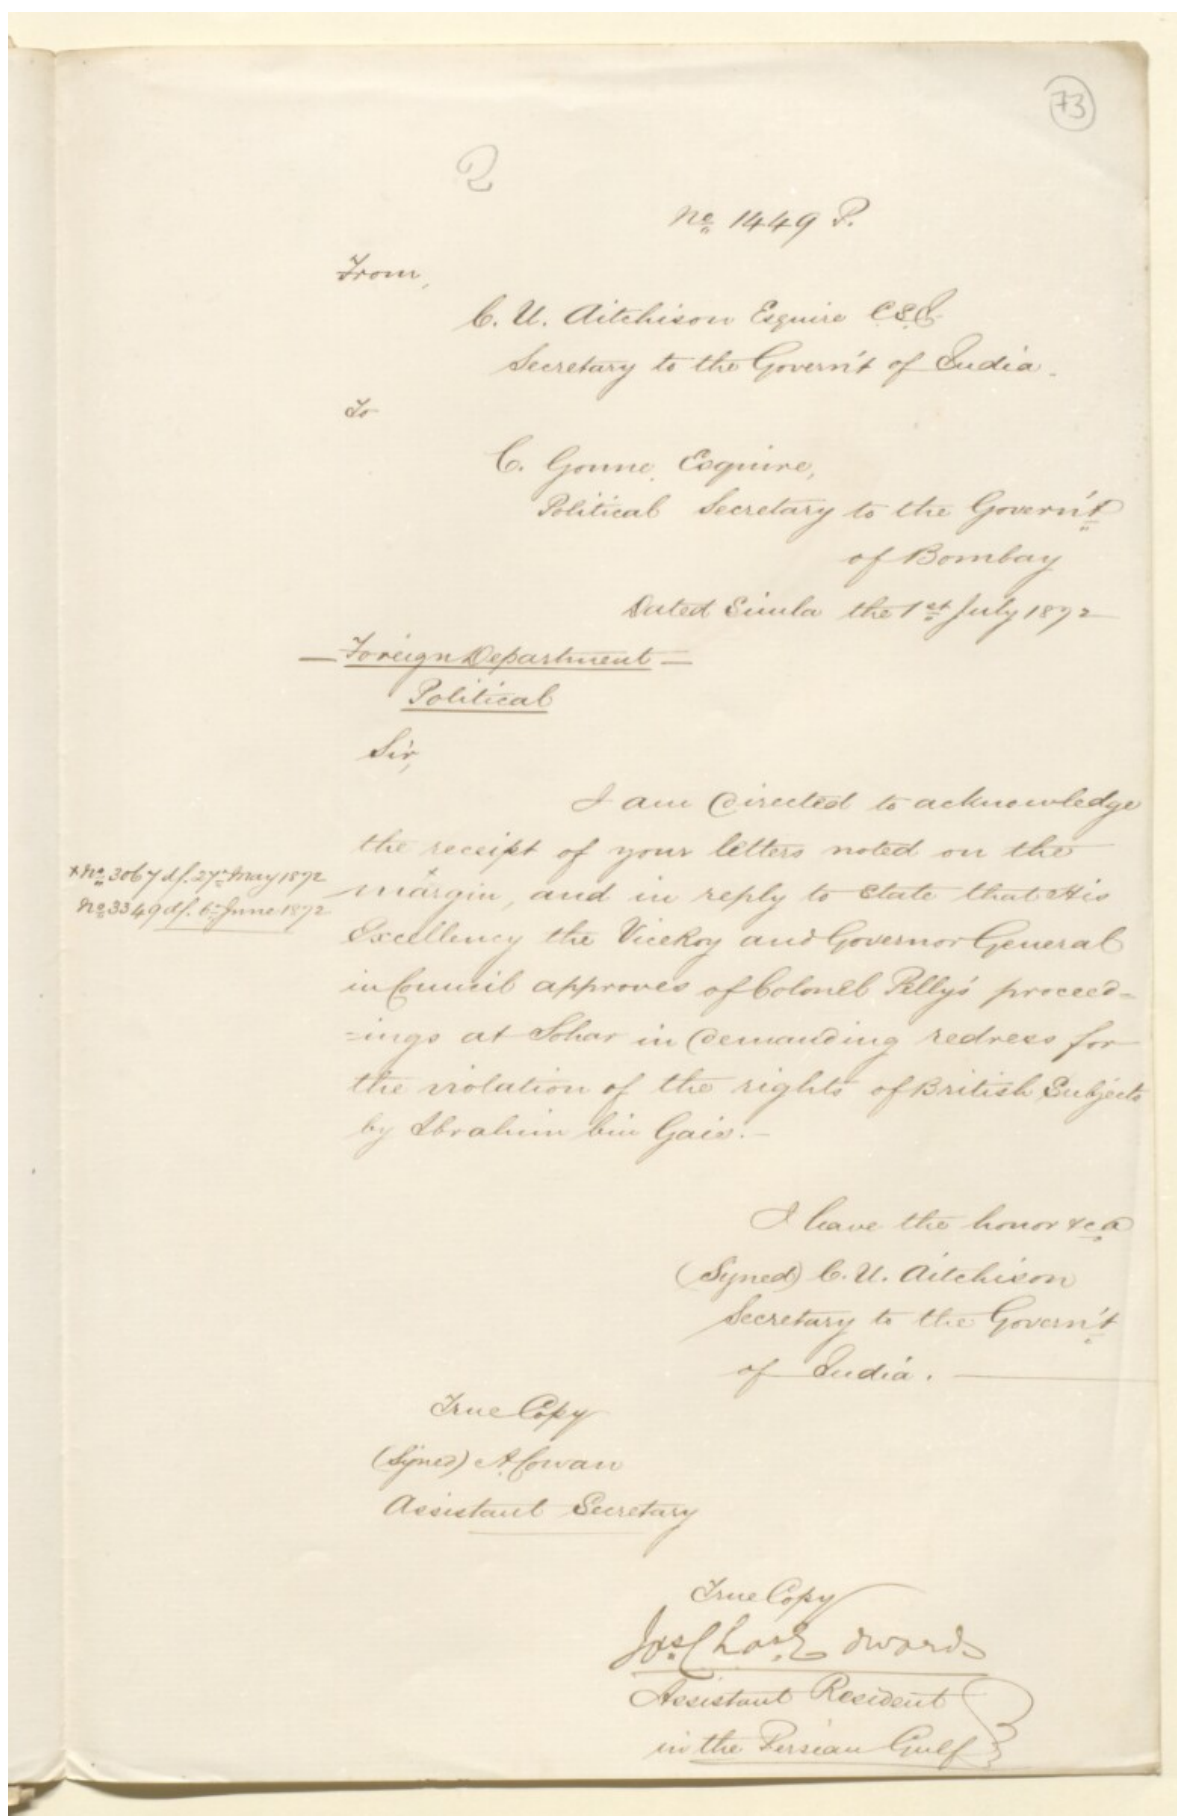 73
2
No 1449 P.
From,
C. U. Aitchison Esquire C.S.I.
Secretary to the Governm't of India.
To
C. Gonne, Esquire,
Political Secretary to the Governm't
of Bombay
Dated Simla the 1st July 1872
Foreign Department
Political
Sir,
I am directed to acknowledge
the receipt of your letters noted on the
x No 3067 dt. 27th May 1872
No 3349 dt. 6th June 1872
margin, x and in reply to state that His
Excellency the ViceRoy and Governor General
in Council approves of Colonel Pelly's proceed-
-ings at Sohar in demanding redress for
the violation of the rights of British Subjects
by Ibrahim bin Gais.
I have the honor &ca
(Signed) C. U. Aitchison
Secretary to the Governm't
of India.
True Copy
(Signed) A. Cowan
Assistant Secretary
True Copy
Jas. Chas. Edwards
Assistant Resident
in the Persian Gulf